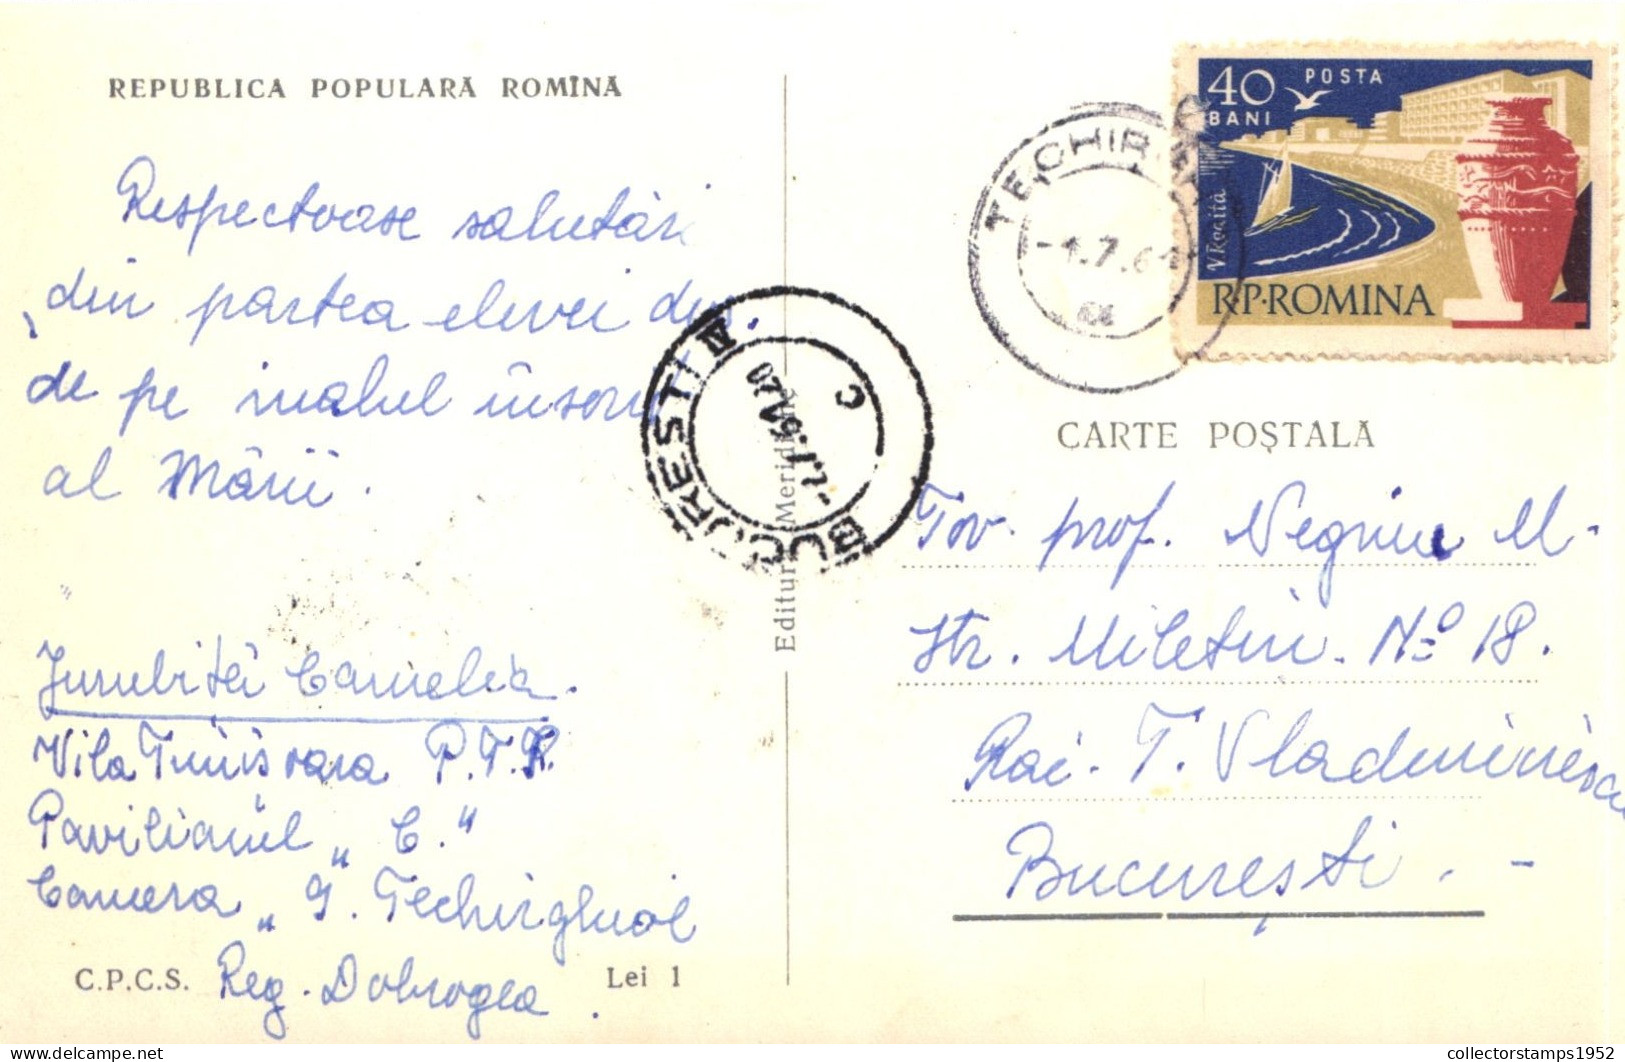 REPUBLICA POPULARĂ ROMÎNĂ
Respectoase salutări
din partea elevei dvs.
de pe malul însorit
al Mării.
Camelia.
Vila Timișoara P.T.R.
Pavilionul „C."
Camera „9. Techirghiol
Reg. Dobrogea.
C.P.C.S.
Lei 1
Editura Meridiane
BUCUREȘTI IV
C
TECHIRGHIOL
-1.7.61
40
BANI
POSTA
V. Roaită
R·P·ROMINA
CARTE POȘTALĂ
Tov. prof. Negriu M.
Str. Miletin. No 18.
Rai. T. Vladimirescu
București. -
collectorstamps1952